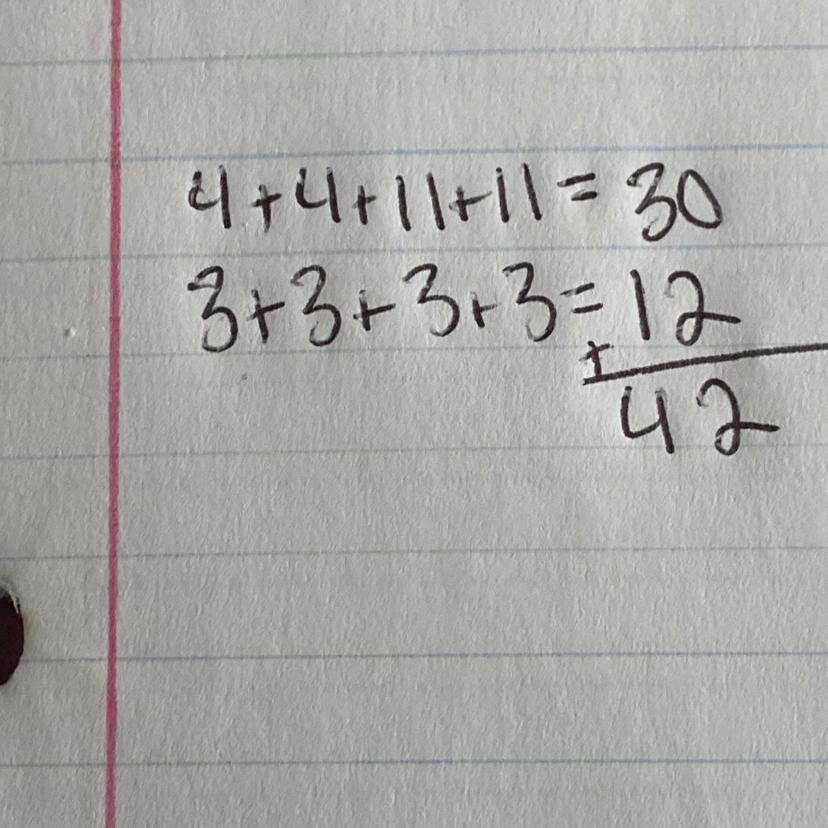 4+4+11+11= 30
3+3+3+3= 12
+
42